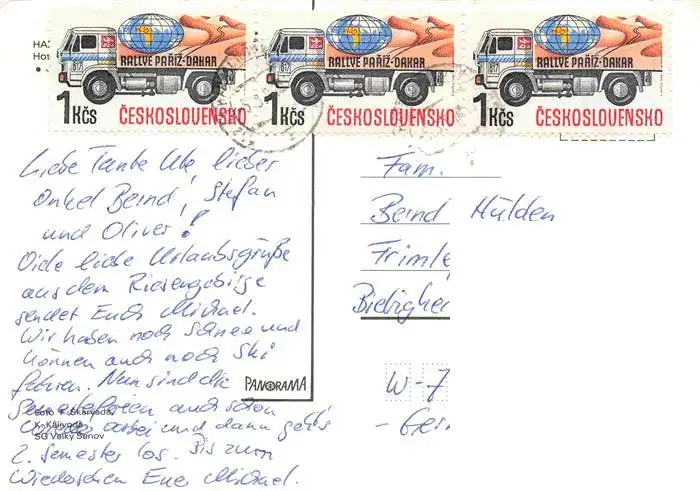 HA
Hot
617
RALLYE PAŘÍŽ-DAKAR
1 Kčs ČESKOSLOVENSKO
617
RALLYE PAŘÍŽ-DAKAR
1 Kčs ČESKOSLOVENSKO
617
RALLYE PAŘÍŽ-DAKAR
1 Kčs ČESKOSLOVENSKO
Liebe Tante Ute, lieber
Onkel Bernd, Stefan
und Oliver!
Viele liebe Urlaubsgrüße
aus dem Riesengebirge
sendet Euch Michael.
Wir haben noch Schnee und
können auch noch Ski
fahren. Nun sind die
Semesterferien auch schon
vorbei und dann geht's
2. Semester los. Bis zum
Wiedersehen Euer Michael.
Foto F. Skřivada,
K. Kalivoda
SG Velký Šenov
PANORAMA
Fam.
Bernd Hülden
Friml
Bietighe
W-7
- Ger